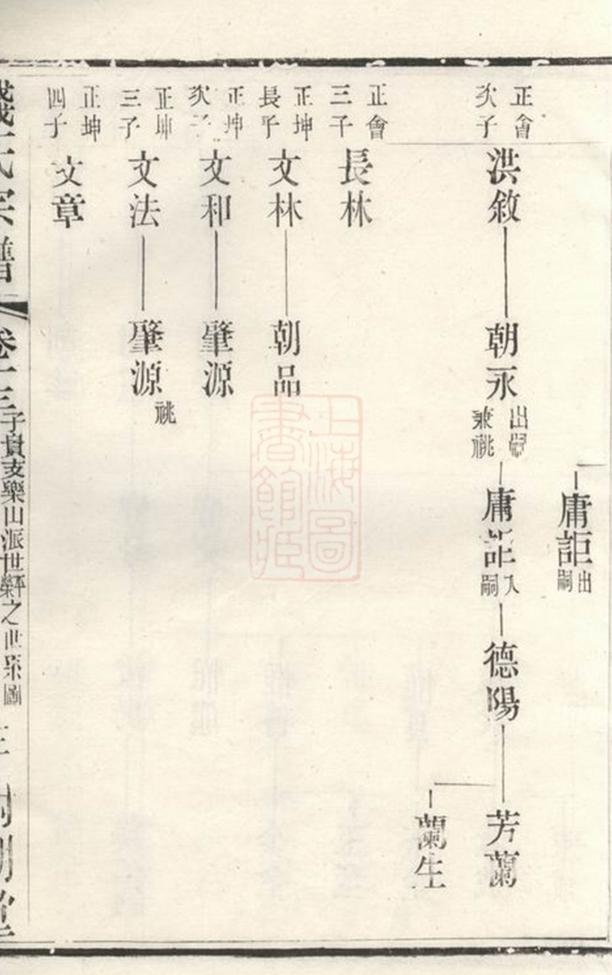 庸詎
出嗣
正會
次子
洪敘
朝永
出嗣
兼祧
庸詎
入嗣
德陽
芳蘭
蘭生
正會
三子
長林
正坤
長子
文林
朝品
正坤
次子
文和
肇源
正坤
三子
文法
肇源
祧
正坤
四子
文章
氏宗譜
卷十三
子貞支樂山派世軒之世系圖
上海圖書館藏